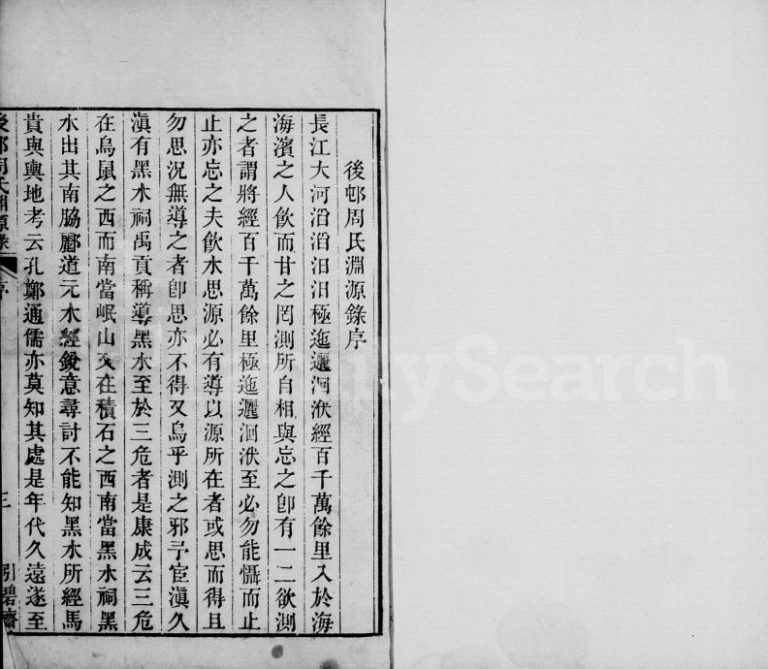 後邨周氏淵源錄序
長江大河滔滔汩汩極迤邐洄洑經百千萬餘里入於海
海濱之人飲而甘之罔測所自相與忘之卽有一二欲測
之者謂將經百千萬餘里極迤邐洄洑至必勿能懾而止
止亦忘之夫飲水思源必有導以源所在者或思而得且
勿思況無導之者卽思亦不得又烏乎測之邪予宦滇久
滇有黑水祠禹貢稱導黑水至於三危者是康成云三危
在鳥鼠之西而南當岷山又在積石之西南當黑水祠黑
水出其南脇酈道元水經銳意尋討不能知黑水所經馬
貴與輿地考云孔鄭通儒亦莫知其處是年代久遠遂至
後邨周氏淵源錄 序 三
FamilySearch